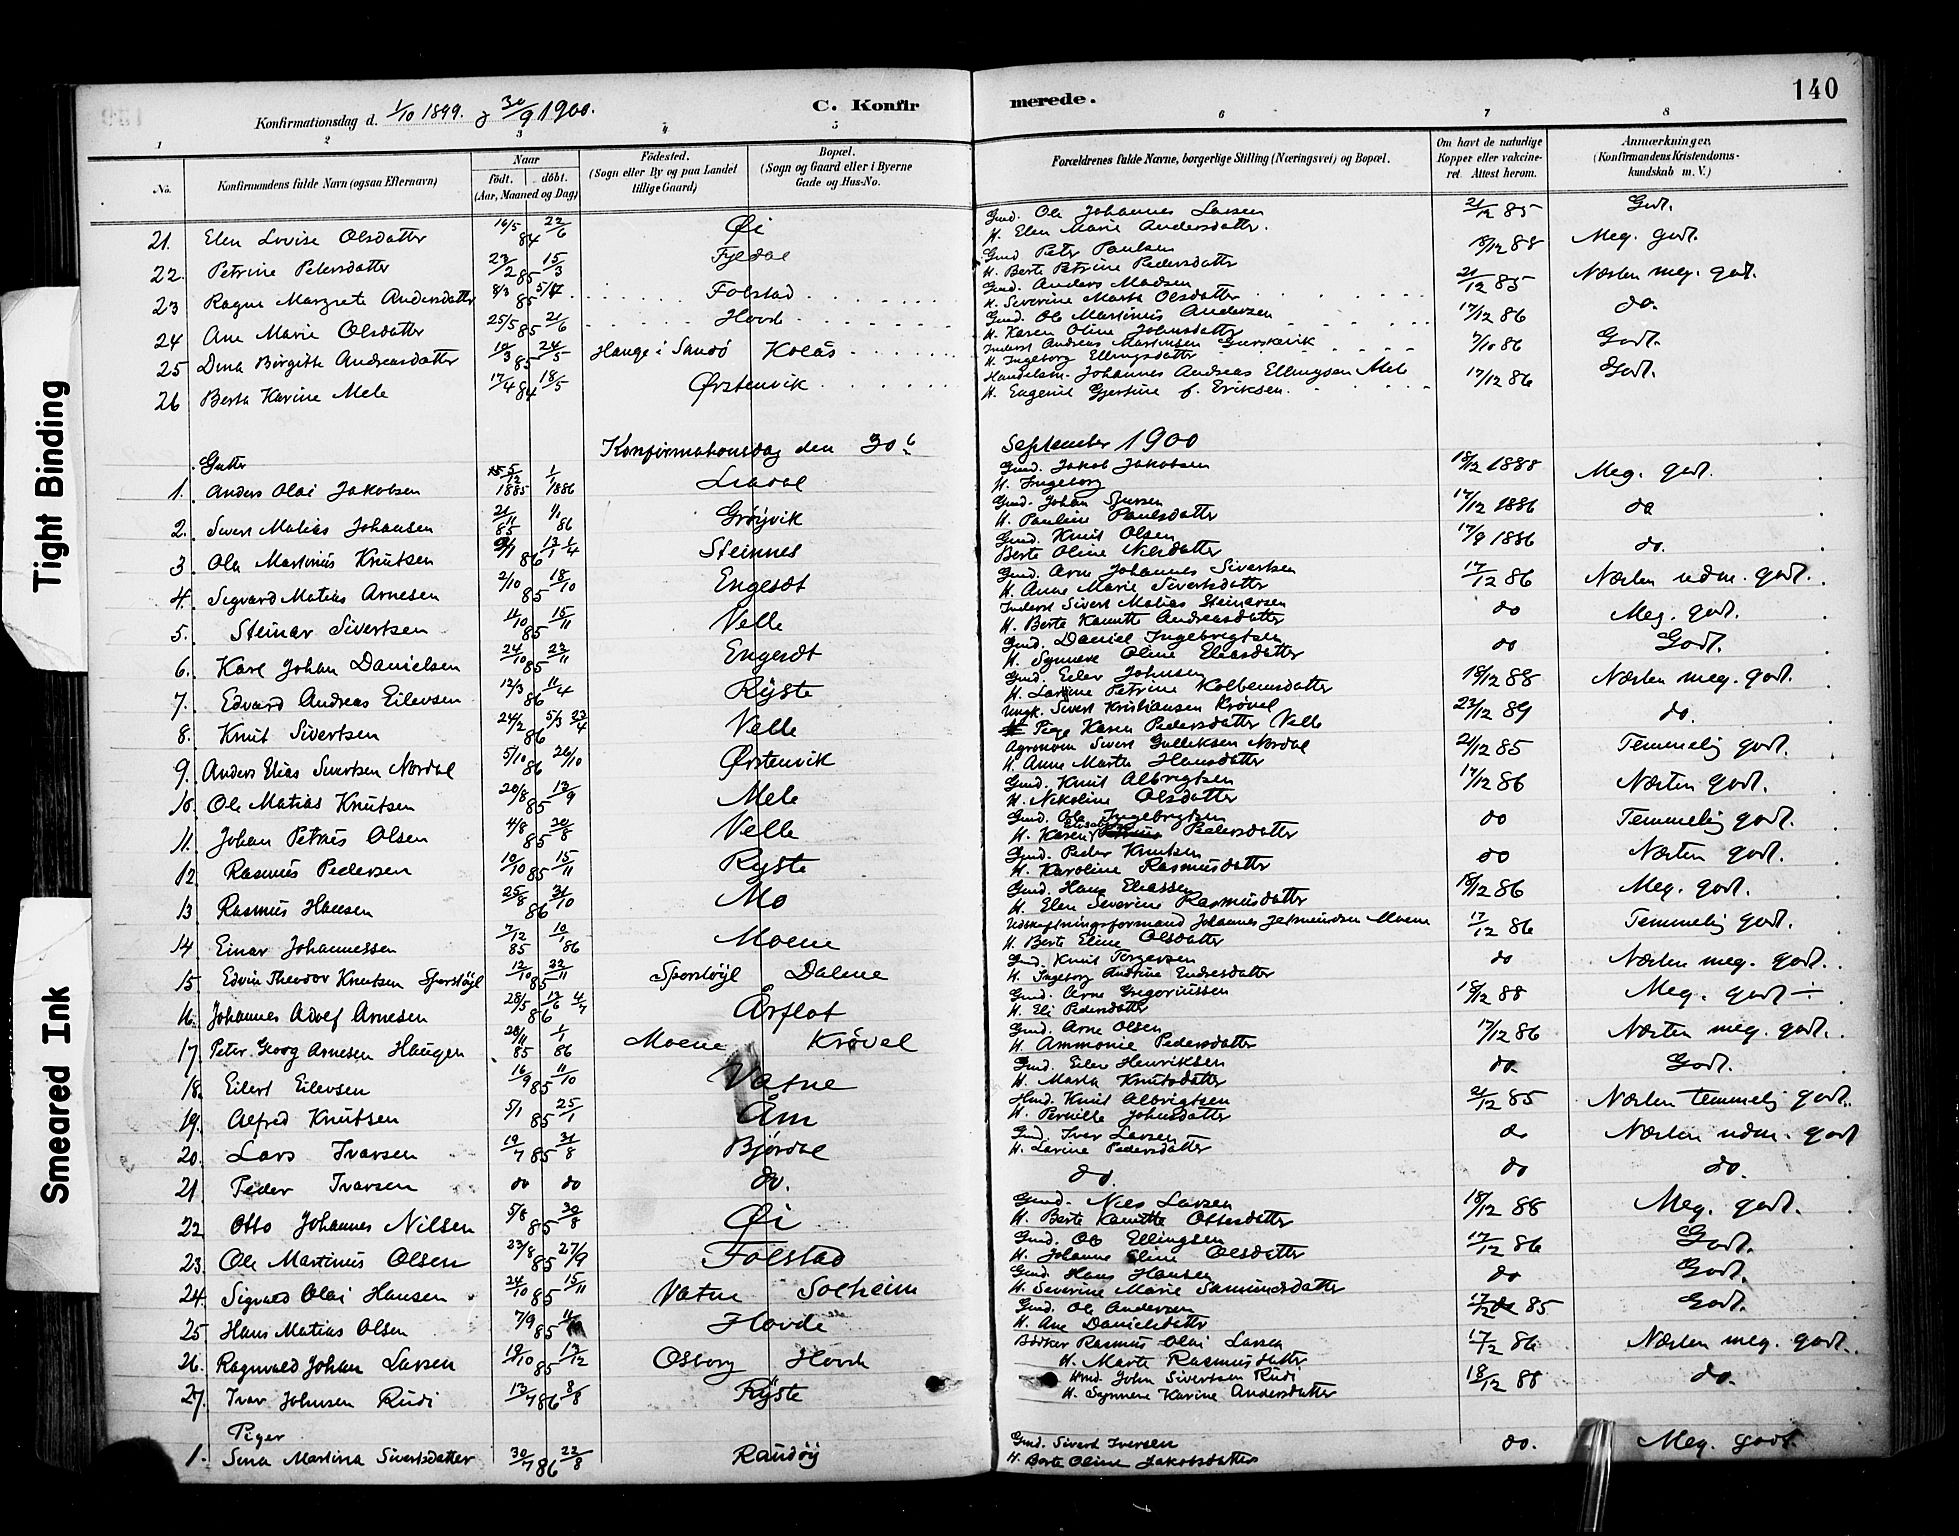 140
C. Konfirmerede.
Konfirmationsdag d. 1/10 1899. & 30/9 1900.
1 2 3 4 5 6 7 8
No. Konfirmandens fulde Navn (ogsaa Efternavn) Naar født. døbt. (Aar, Maaned og Dag) Fødested. (Sogn eller By og paa Landet tillige Gaard) Bopæl. (Sogn og Gaard eller i Byerne Gade og Hus-No. Forældrenes fulde Navne, borgerlige Stilling (Næringsvei) og Bopæl. Om havt de naturlige Kopper eller vakcineret. Attest herom. Anmærkninger. (Konfirmandens Kristendomskundskab m. V.)
21. Elen Lovise Olsdatter 16/5 84 22/6 Øi Gmd. Ole Johannes Larsen H. Elen Marie Andersdatter. 21/12 85 Godt.
22. Petrine Petersdatter 85 15/3 Gmd Peter Paulsen H. Berte Petrine Pedersdatter 18/12 88 Meg. godt.
23 Ragna Margrete Andersdatter 8/3 85 Folstad Gmd. Anders Madsen H. Severine Marta Olsdatter 21/12 85 Næsten meg. godt.
24 Ane Marie Olsdatter 25/5 85 21/6 Hovde Gmd. Ole Martinus Andersen H. Karen Oline Johnsdatter 17/12 86 do.
25 Dina Birgitte Andreasdatter 10/3 85 24/5 Hauge i Sandø Kolås Inderst Andreas Martinsen Gurskevik H. Ingeborg Ellingsdatter 7/10 86 Godt.
26 Berta Karine Mele 17/4 84 18/5 Ørstenvik Handelsm. Johannes Andreas Ellingsen Mele H. Eugenie Gjertine f. Eriksen. 17/12 86 Godt.
Konfirmationsdag den 30te September 1900
Gutter
1. Anders Olai Jakobsen 5/12 1885 1/1 1886 Liadal Gmd. Jakob Jakobsen H. Ingeborg 18/12 1888 Meg. godt.
2. Sivert Matias Johansen 21/11 85 1/1 86 Grøyvik Gmd. Johan Sjursen H. Pauline Paulsdatter 17/12 1886 do
3 Ole Martinus Knutsen 86 Steinnes Gmd. Knut Olsen Berte Oline Nilsdatter 17/9 1886 do.
4. Sigvard Matias Arnesen 2/10 85 18/10 Engeset Gmd. Arne Johannes Sivertsen H. Anne Marie Sivertsdatter 17/12 86 Næsten udm. godt.
5. Steinar Sivertsen 11/10 85 15/11 Velle Inderst Sivert Matias Steinarsen H. Berte Kanutte Andreasdatter do Meg. godt.
6. Karl Johan Danielsen 24/10 85 22/11 Engeset Gmd. Daniel Ingebrigtsen H. Synneve Oline Eliasdatter do Godt.
7. Edvard Andreas Eilevsen 12/3 86 11/4 Ryste Gmd. Eilev Johnsen H. Larsine Petrine Kolbensdatter 18/12 88 Næsten meg. godt.
8. Knut Sivertsen 24/2 86 5/3 23/4 Velle Ungk. Sivert Kristiansen Krøvel Pige Karen Pedersdatter Velle 22/12 89 do.
9. Anders Elias Sivertsen Nordal 5/10 86 26/10 Ørstenvik Agronom Sivert Gulliksen Nordal H. Anne Marta Hansdatter 21/12 85 Temmelig godt.
10. Ole Matias Knutsen 20/8 85 13/9 Mele Gmd. Knut Albrigtsen H. Nikoline Olsdatter 17/12 86 Næsten godt.
11. Johan Petrus Olsen 4/8 85 20/8 Velle Gmd. Ole Ingebrigtsen H. Karen Pedersdatter do Temmelig godt.
12. Rasmus Pedersen 10/10 85 15/11 Ryste Gmd. Peder Knutsen H. Karoline Rasmusdatter do Næsten godt.
13. Rasmus Hansen 25/8 86 31/10 Mo Gmd. Hans Eliassen H. Elen Severine Rasmusdatter 18/12 86 Meg. godt.
14 Einar Johannessen 7/12 85 10/1 86 Moene Udskiftningsformand Johannes Moene H. Berte Eline Olsdatter 17/12 86 Temmelig godt.
15 Edvin Theodor Knutsen Sporstøyl 12/10 85 22/11 Sporstøyl Dalene Gmd. Knut Torgersen H. Ingeborg Andrine Endresdatter do Næsten meg. godt.
16. Johannes Adolf Arnesen 28/5 86 Årflot Gmd. Arne Gregoriussen H. Eli Pedersdatter 18/12 88 Meg. godt ÷
17. Peter Georg Arnesen Haugen 28/11 85 1/1 86 Moene Krøvel Gmd. Arne Olsen H. Ammonie Pedersdatter 17/12 86 Næsten meg. godt.
18. Eilert Eilevsen 16/9 85 11/10 Vatne Gmd. Eilev Henriksen H. Marta Knutsdatter do. Godt.
19. Alfred Knutsen 5/1 85 25/1 Åm Hmd. Knut Albrigtsen H. Pernille Johnsdatter 21/12 85 Næsten temmelig godt.
20. Lars Ivarsen 19/7 85 31/8 Bjørdal Gmd. Ivar Larsen H. Larine Pedersdatter do Næsten udm. godt
21 Peder Ivarsen do do do. do. do do.
22 Otto Johannes Nilsen 5/8 85 30/8 Øi Gmd. Nils Larsen H. Berte Kanutte Ottesdatter 18/12 88 Meg. godt.
23. Ole Martinus Olsen 23/8 85 27/9 Folstad Gmd. Ole Ellingsen H. Johanne Eline Olsdatter 17/12 86 Godt.
24. Sigvald Olai Hansen 24/10 85 15/11 Vatne Solheim Gmd. Hans Hansen H. Severine Marie Samundsdatter do Godt.
25 Hans Matias Olsen 7/9 85 Hovde Gmd. Ole Andersen H. Ane Danielsdatter 17/12 85 Godt.
26. Ragnvald Johan Larsen 19/10 85 13/12 Osborg Hovde Bødker Rasmus Olai Larsen H. Marte Rasmusdatter 17/12 86 Næsten meg. godt.
27. Ivar Johnsen Rudi 13/7 86 8/8 Ryste Hmd. John Sivertsen Rudi H. Synneve Karine Andersdatter 18/12 88 do.
Piger
1. Sina Martina Sivertsdatter 30/7 86 22/8 Raudøy Gmd. Sivert Iversen H. Berte Oline Jakobsdatter do. Meg. godt.
Tight Binding
Smeared Ink